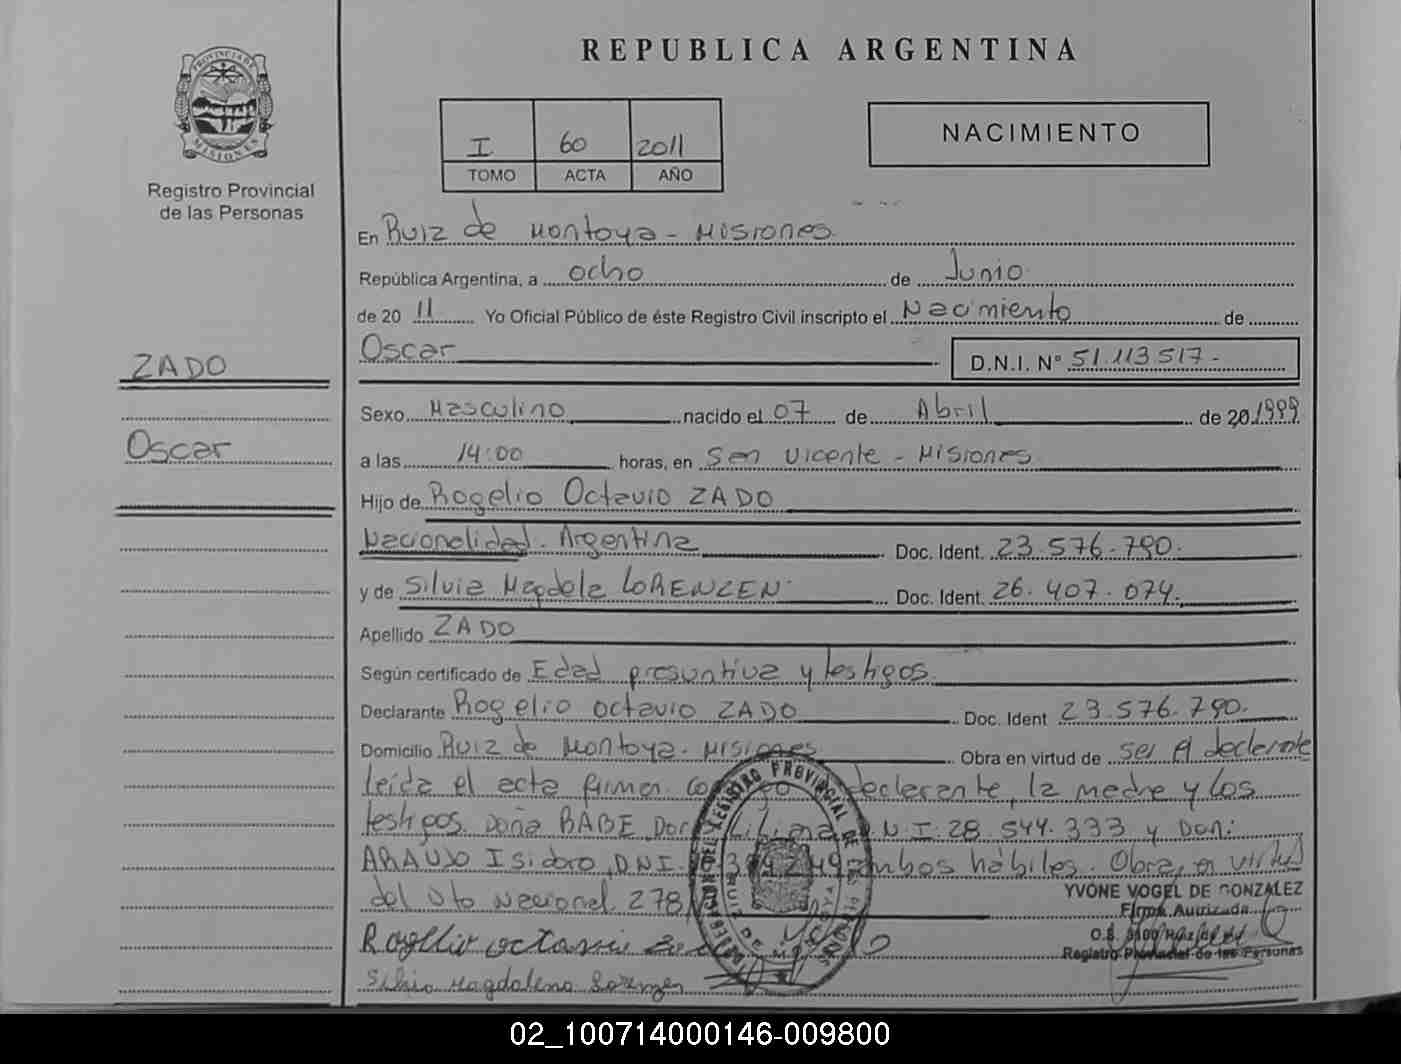 REPUBLICA ARGENTINA
PROVINCIA DE
MISIONES
Registro Provincial
de las Personas
I 60 2011
TOMO ACTA AÑO
NACIMIENTO
En Ruiz de Montoya - Misiones
República Argentina, a ocho de Junio
de 20 11 Yo Oficial Público de éste Registro Civil inscripto el Nacimiento de
Oscar D.N.I. N° 51.113.517-
ZADO
Oscar
Sexo Masculino nacido el 07 de Abril de 20 1999
a las 14:00 horas, en San Vicente - Misiones
Hijo de Rogelio Octavio ZADO
Nacionalidad Argentina Doc. Ident. 23.576.790.
y de Silvia Magdala LORENZEN Doc. Ident. 26.407.074.
Apellido ZADO
Según certificado de Edad presuntiva y testigos
Declarante Rogelio Octavio ZADO Doc. Ident 23.576.790.
Domicilio Ruiz de Montoya - Misiones Obra en virtud de ser el declarante
leída el acta firman declarante, la madre y los
testigos Doña BABE Liliana D.N.I. 28.544.333 y Don:
ARAUJO Isidoro, DNI. ambos hábiles. Obra en virtud
del Dto Nacional 278
YVONE VOGEL DE GONZALEZ
Firma Autorizada
Registro Provincial de las Personas
Rogelio octavio
Silvia Magdalena Lorenzen
02_100714000146-009800